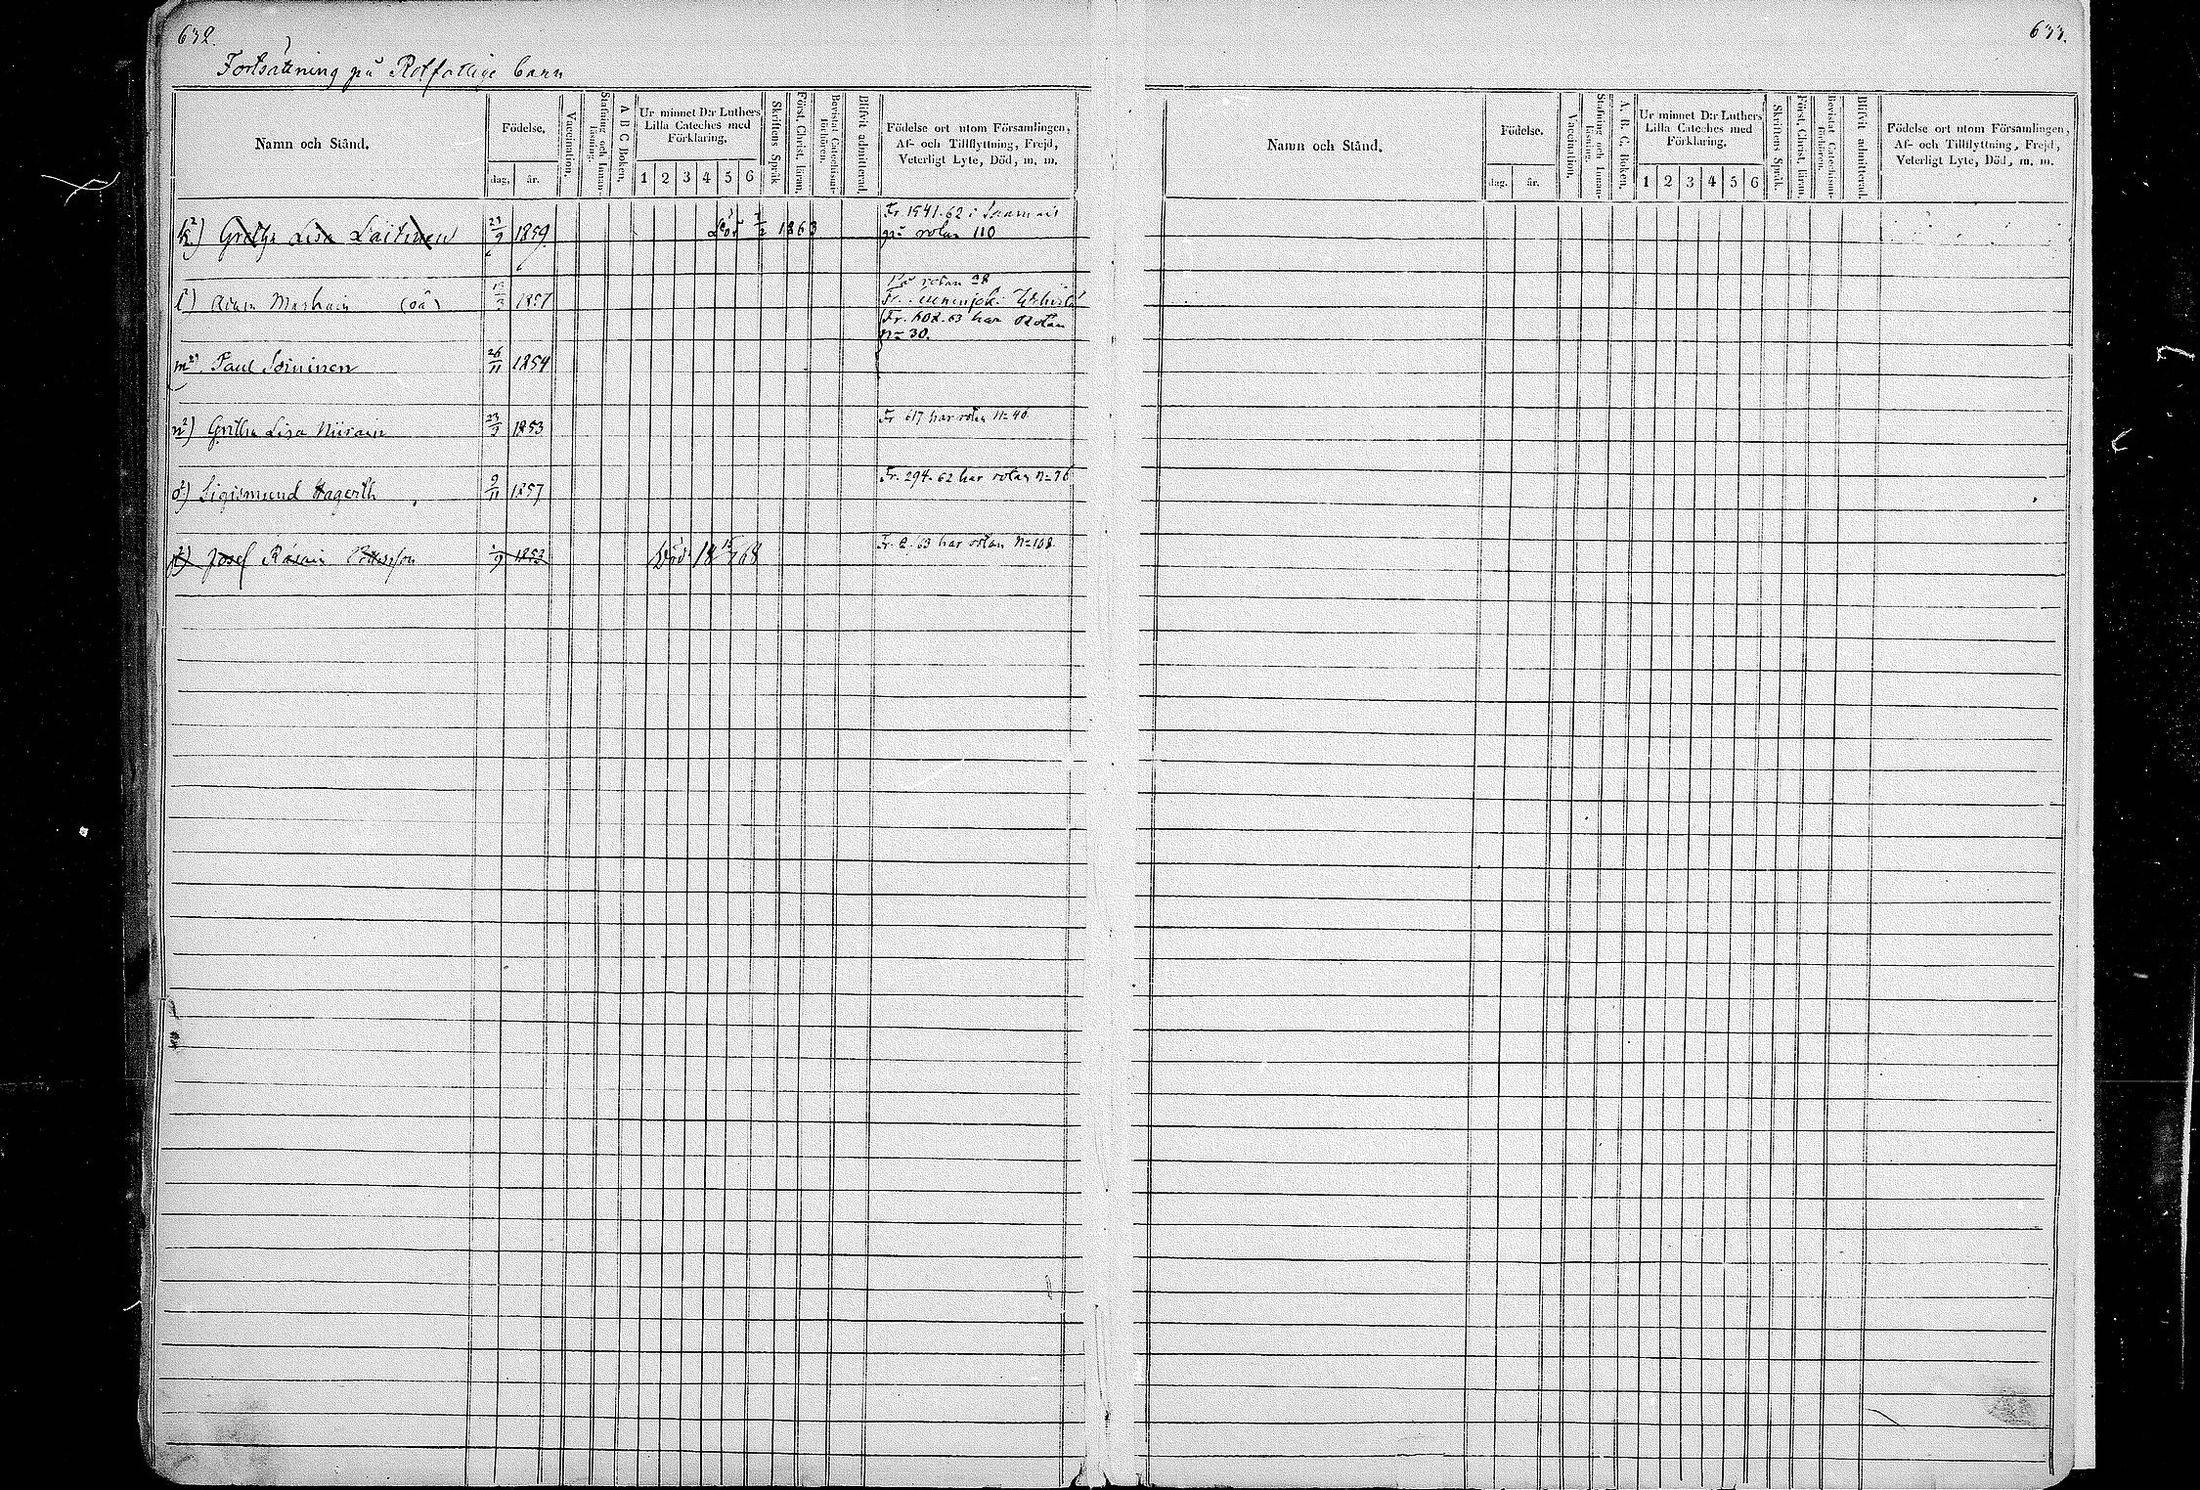 632.
Fortsättning på Rotfattige barn
Namn och Stånd.
Födelse.
dag.
år.
Vaccination.
Stafning och Innan-
läsning.
A B C Boken.
Ur minnet D:r Luthers
Lilla Cateches med
Förklaring.
1 2 3 4 5 6
Skriftens Språk
Först. Christ. läran.
Bevistat Catechismi-
förhören.
Blifvit admitterad.
Födelse ort utom Församlingen,
Af- och Tillflyttning, Frejd,
Veterligt Lyte, Död, m. m.
k²) Gretha Lisa Laitinen 23/9 1859. Död 7/2 1863
Fr. 1541.62 i
på rotan 110
l²) Adam 13/3 1857
På rotan 28
Fr. 
Fr. 502.63 har Rotan
n= 30.
m²) Paul Soininen 26/11 1854
n²) Gretha Lisa 23/3 1853 Fr 617 har rotan n= 40
o²) Sigismund Hagerth 9/11 1857 Fr. 294.62 har rotan n= 76
p²) Josef Räsäin /9 1853 Död 18 15/7 68 Fr. 2.63 har rotan n= 108
633.
Namn och Stånd.
Födelse.
dag.
år.
Vaccination.
Stafning och Innan-
läsning.
A. B. C. Boken.
Ur minnet D:r Luthers
Lilla Cateches med
Förklaring.
1 2 3 4 5 6
Skriftens Språk.
Först. Christ. läran.
Bevistat Catechismi-
förhören.
Blifvit admitterad.
Födelse ort utom Församlingen,
Af- och Tillflyttning, Frejd,
Veterligt Lyte, Död, m. m.